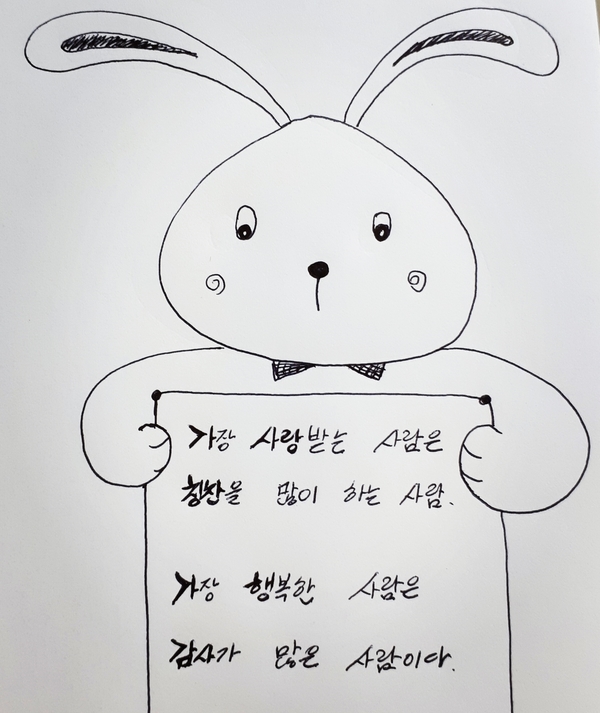 가장 사랑받는 사람은
칭찬을 많이 하는 사람.
가장 행복한 사람은
감사가 많은 사람이다.